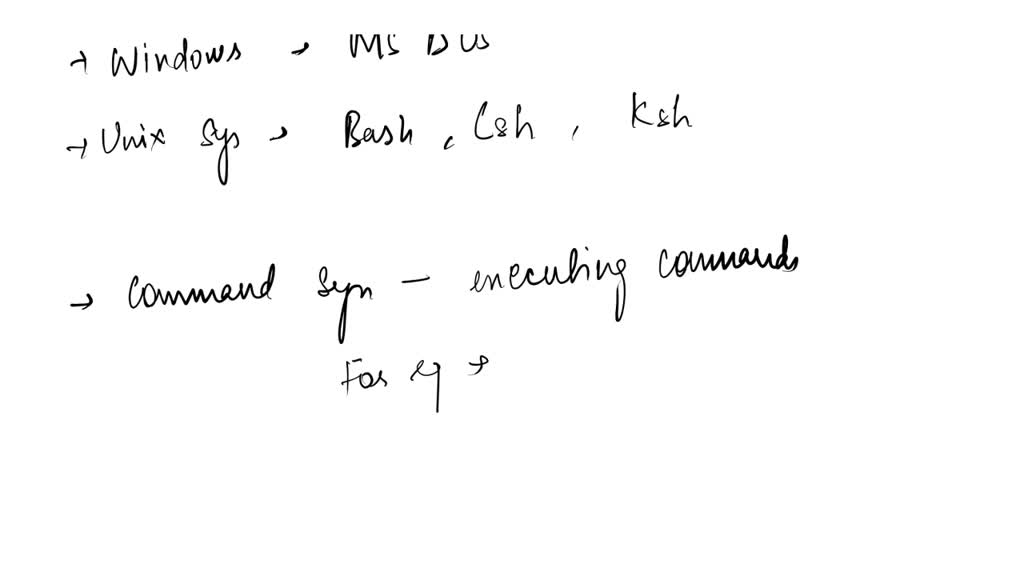 → Windows → MS DOS
→ Unix Sys → Bash, Csh, Ksh
→ Command Syn - executing commands
For eg →